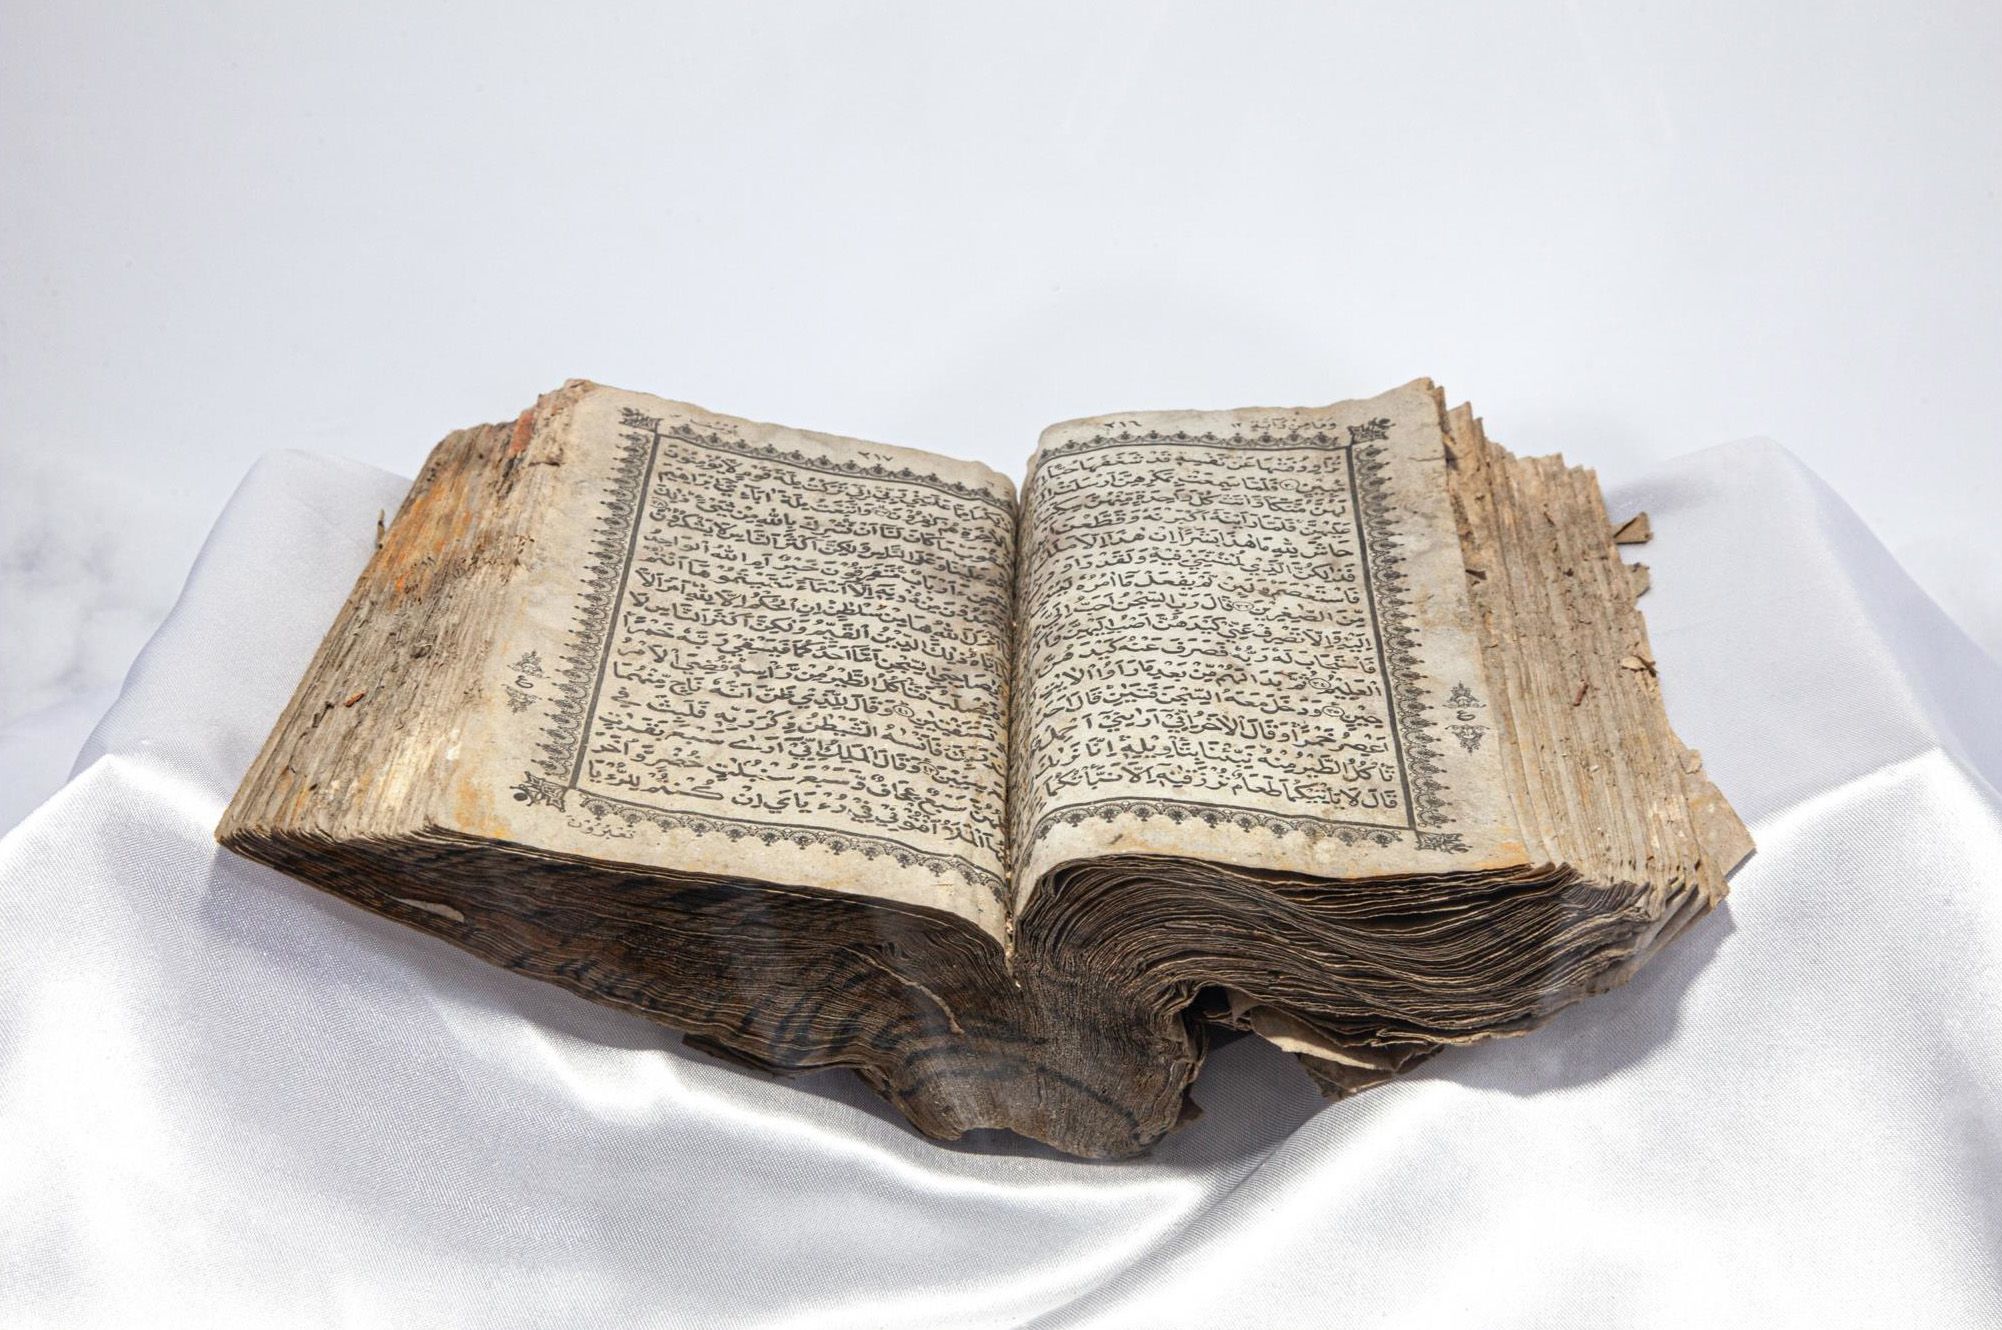 وما من دابة ١٢
٢١٦
تُرَاوِدُ فَتٰىهَا عَنْ نَّفْسِهٖ قَدْ شَغَفَهَا حُبًّا
مُّبِيْنٍ ۝٣٠ فَلَمَّا سَمِعَتْ بِمَكْرِهِنَّ اَرْسَلَتْ
لَهُنَّ مُتَّكَاً وَّاٰتَتْ كُلَّ وَاحِدَةٍ مِّنْهُنَّ
عَلَيْهِنَّ فَلَمَّا رَاَيْنَهٗ اَكْبَرْنَهٗ وَقَطَّعْنَ
حَاشَ لِلّٰهِ مَا هٰذَا بَشَرًا اِنْ هٰذَا اِلَّا
فَذٰلِكُنَّ الَّذِيْ لُمْتُنَّنِيْ فِيْهِ وَلَقَدْ
فَاسْتَعْصَمَ وَلَئِنْ لَّمْ يَفْعَلْ مَا اٰمُرُهٗ
مِّنَ الصّٰغِرِيْنَ ۝٣٢ قَالَ رَبِّ السِّجْنُ اَحَبُّ اِلَيَّ
اِلَيْهِ وَاِلَّا تَصْرِفْ عَنِّيْ كَيْدَهُنَّ اَصْبُ اِلَيْهِنَّ
فَاسْتَجَابَ لَهٗ رَبُّهٗ فَصَرَفَ عَنْهُ كَيْدَهُنَّ
الْعَلِيْمُ ۝٣٤ ثُمَّ بَدَا لَهُمْ مِّنْ بَعْدِ مَا رَاَوُا الْاٰيٰتِ
حِيْنٍ ۝٣٥ وَدَخَلَ مَعَهُ السِّجْنَ فَتَيٰنِ قَالَ
اَعْصِرُ خَمْرًا وَقَالَ الْاٰخَرُ اِنِّيْ اَرٰىنِيْ اَحْمِلُ
تَاْكُلُ الطَّيْرُ مِنْهُ نَبِّئْنَا بِتَاْوِيْلِهٖ اِنَّا نَرٰىكَ
قَالَ لَا يَاْتِيْكُمَا طَعَامٌ تُرْزَقٰنِهٖ اِلَّا نَبَّاْتُكُمَا
ع
٢١٧
عَلَّمَنِيْ رَبِّيْ اِنِّيْ تَرَكْتُ مِلَّةَ قَوْمٍ لَّا يُؤْمِنُوْنَ
هُمْ كٰفِرُوْنَ ۝٣٧ وَاتَّبَعْتُ مِلَّةَ اٰبَآءِيْ اِبْرٰهِيْمَ
مَا كَانَ لَنَا اَنْ نُّشْرِكَ بِاللّٰهِ مِنْ شَيْءٍ ذٰلِكَ
عَلَيْنَا وَعَلَى النَّاسِ وَلٰكِنَّ اَكْثَرَ النَّاسِ لَا يَشْكُرُوْنَ
مُّتَفَرِّقُوْنَ خَيْرٌ اَمِ اللّٰهُ الْوَاحِدُ
مِنْ دُوْنِهٖ اِلَّا اَسْمَآءً سَمَّيْتُمُوْهَا اَنْتُمْ
اللّٰهُ بِهَا مِنْ سُلْطٰنٍ اِنِ الْحُكْمُ اِلَّا لِلّٰهِ اَمَرَ اَلَّا
ذٰلِكَ الدِّيْنُ الْقَيِّمُ وَلٰكِنَّ اَكْثَرَ النَّاسِ لَا
السِّجْنِ اَمَّا اَحَدُكُمَا فَيَسْقِيْ رَبَّهٗ خَمْرًا
فَتَاْكُلُ الطَّيْرُ مِنْ رَّاْسِهٖ قُضِيَ الْاَمْرُ
تَسْتَفْتِيٰنِ ۝٤١ وَقَالَ لِلَّذِيْ ظَنَّ اَنَّهٗ نَاجٍ مِّنْهُمَا
فَاَنْسٰىهُ الشَّيْطٰنُ ذِكْرَ رَبِّهٖ فَلَبِثَ فِي
سِنِيْنَ ۝٤٢ وَقَالَ الْمَلِكُ اِنِّيْ اَرٰى سَبْعَ بَقَرٰتٍ
سَبْعٌ عِجَافٌ وَّسَبْعَ سُنْۢبُلٰتٍ خُضْرٍ وَّاُخَرَ
الْمَلَاُ اَفْتُوْنِيْ فِيْ رُءْيَايَ اِنْ كُنْتُمْ لِلرُّءْيَا
تعبرون
ع